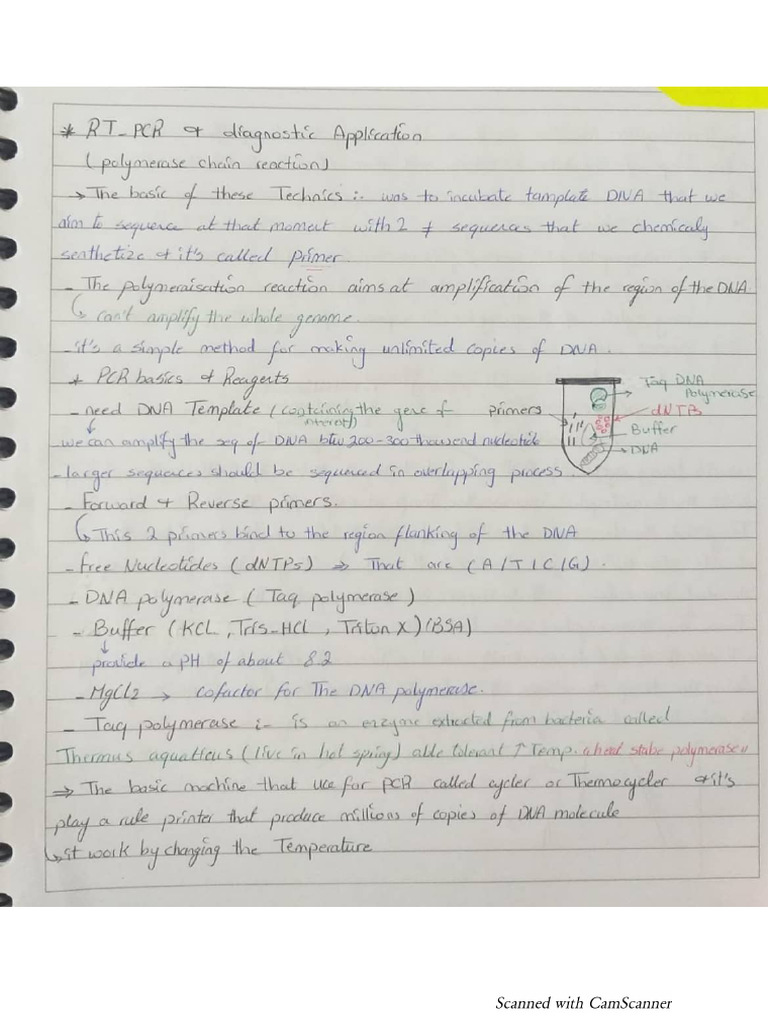 * RT_PCR & diagnostic Application
(polymerase chain reaction)
→ The basic of these Technics :- was to incubate tamplate DNA that we
aim to sequence at that moment with 2 ≠ sequences that we chemicaly
senthetize & it's called primer.
- The polymeraisation reaction aims at amplification of the region of the DNA
can't amplify the whole genome.
- it's a simple method for making unlimited copies of DNA.
* PCR basics & Reagents
- need DNA Template (containing the gene of interest)
we can amplify the seq of DNA btw 200-300 thousend nucleotide
- larger sequences should be sequenced in overlapping process.
- Forward & Reverse primers.
This 2 primers bind to the region flanking of the DNA
- free Nucleotides (dNTPs) ⇒ That are (A/T/C/G).
- DNA polymerase (Taq polymerase)
- Buffer (KCL, Tris-HCL, Triton X) (BSA)
provide a PH of about 8.2
- MgCl2 → cofactor for The DNA polymerase.
- Taq polymerase :- is an enzyme extracted from bacteria called
Thermus aquaticus (live in hot spring) able tolerent ↑ Temp. a heat stabe polymerase
⇒ The basic machine that use for PCR called cycler or Thermocycler & it's
play a rule printer that produce millions of copies of DNA molecule
it work by changing the Temperature
primers
Taq DNA
Polymerase
dNTB
Buffer
DNA
Scanned with CamScanner